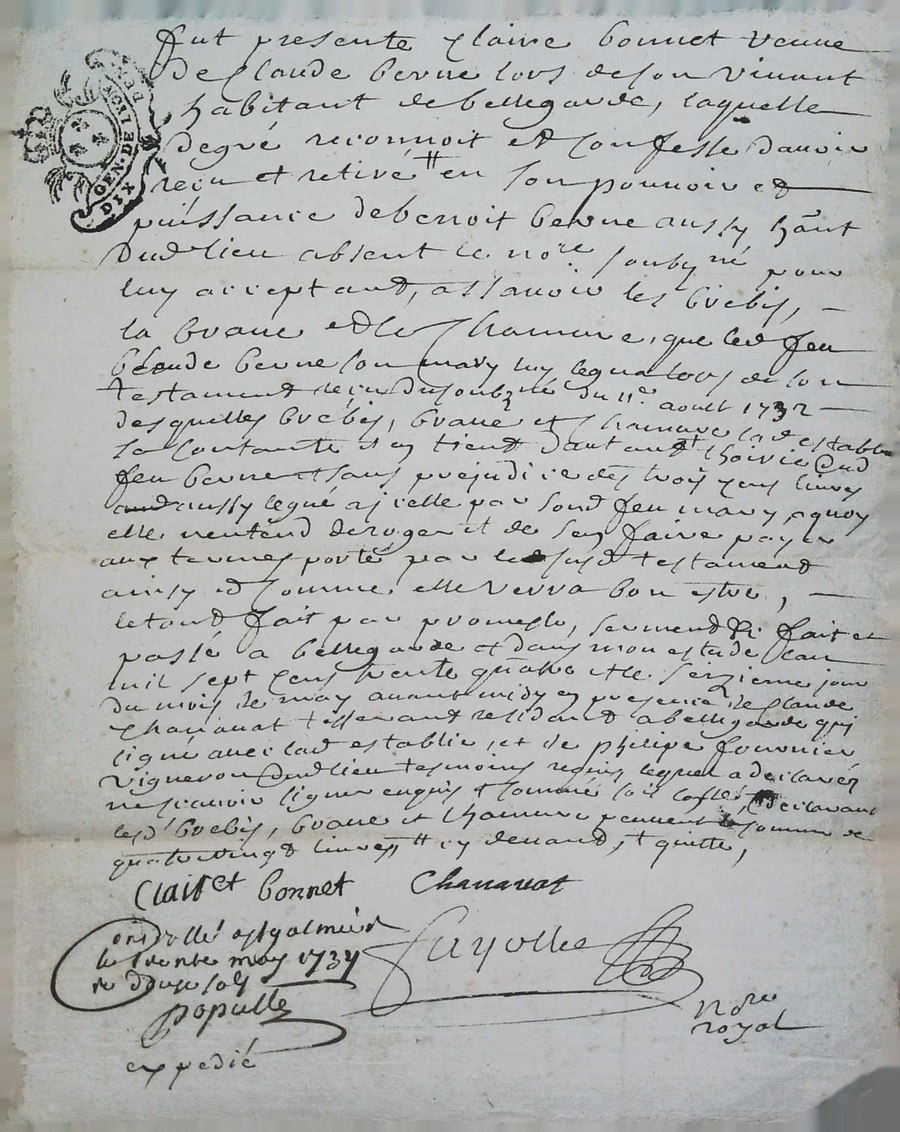 GEN. DE LION
DIX DEN
fut presente Claire bonnet veuve
de Claude berne lors de son vivant
habitant de bellegarde, laquelle
degré reconnoit et confesse davoir
reçu et retiré en son pouvoir et
puissance de benoit berne aussy hant
dud lieu absent le nore soubné pour
luy acceptant, assavoir les brebis,
la vrane et le chamure, que led feu
Claude berne son mary luy legua lors de son
testament reçu du soubné du 11e aoust 1732
desquelles brebis, vrane et chamure lad establie
se contante et en tient d'autant lhoirie dud
feu berne et sans prejudice des trois cens livres
aussy legué a icelle par sond feu mary, a quoy
elle n'entend deroger et de sen faire payer
aux termes porté par led susd testament
ainsy et comme elle verra bon estre,
le tout fait par promesse, serment &c fait et
passé a bellegarde et dans mon estude lan
mil sept cens trente quatre et le seizieme jour
du mois de may avant midy en presence de Claude
Chanavat tisserant residant a bellegarde qui
signé avec lad establie, et de philipe fournier
vigneron dud lieu tesmoins requis lequel a declaré
ne scavoir signer enquis et sommé declarant
lesd brebis, vrane et chamure peuvent la somme de
quatre vingt livres cy devand, et quitte,
Clairet bonnet Chanavat
Controllé a st galmier
le trente may 1734
re douze sols
populle
Fayolle
nore
royal
expedié